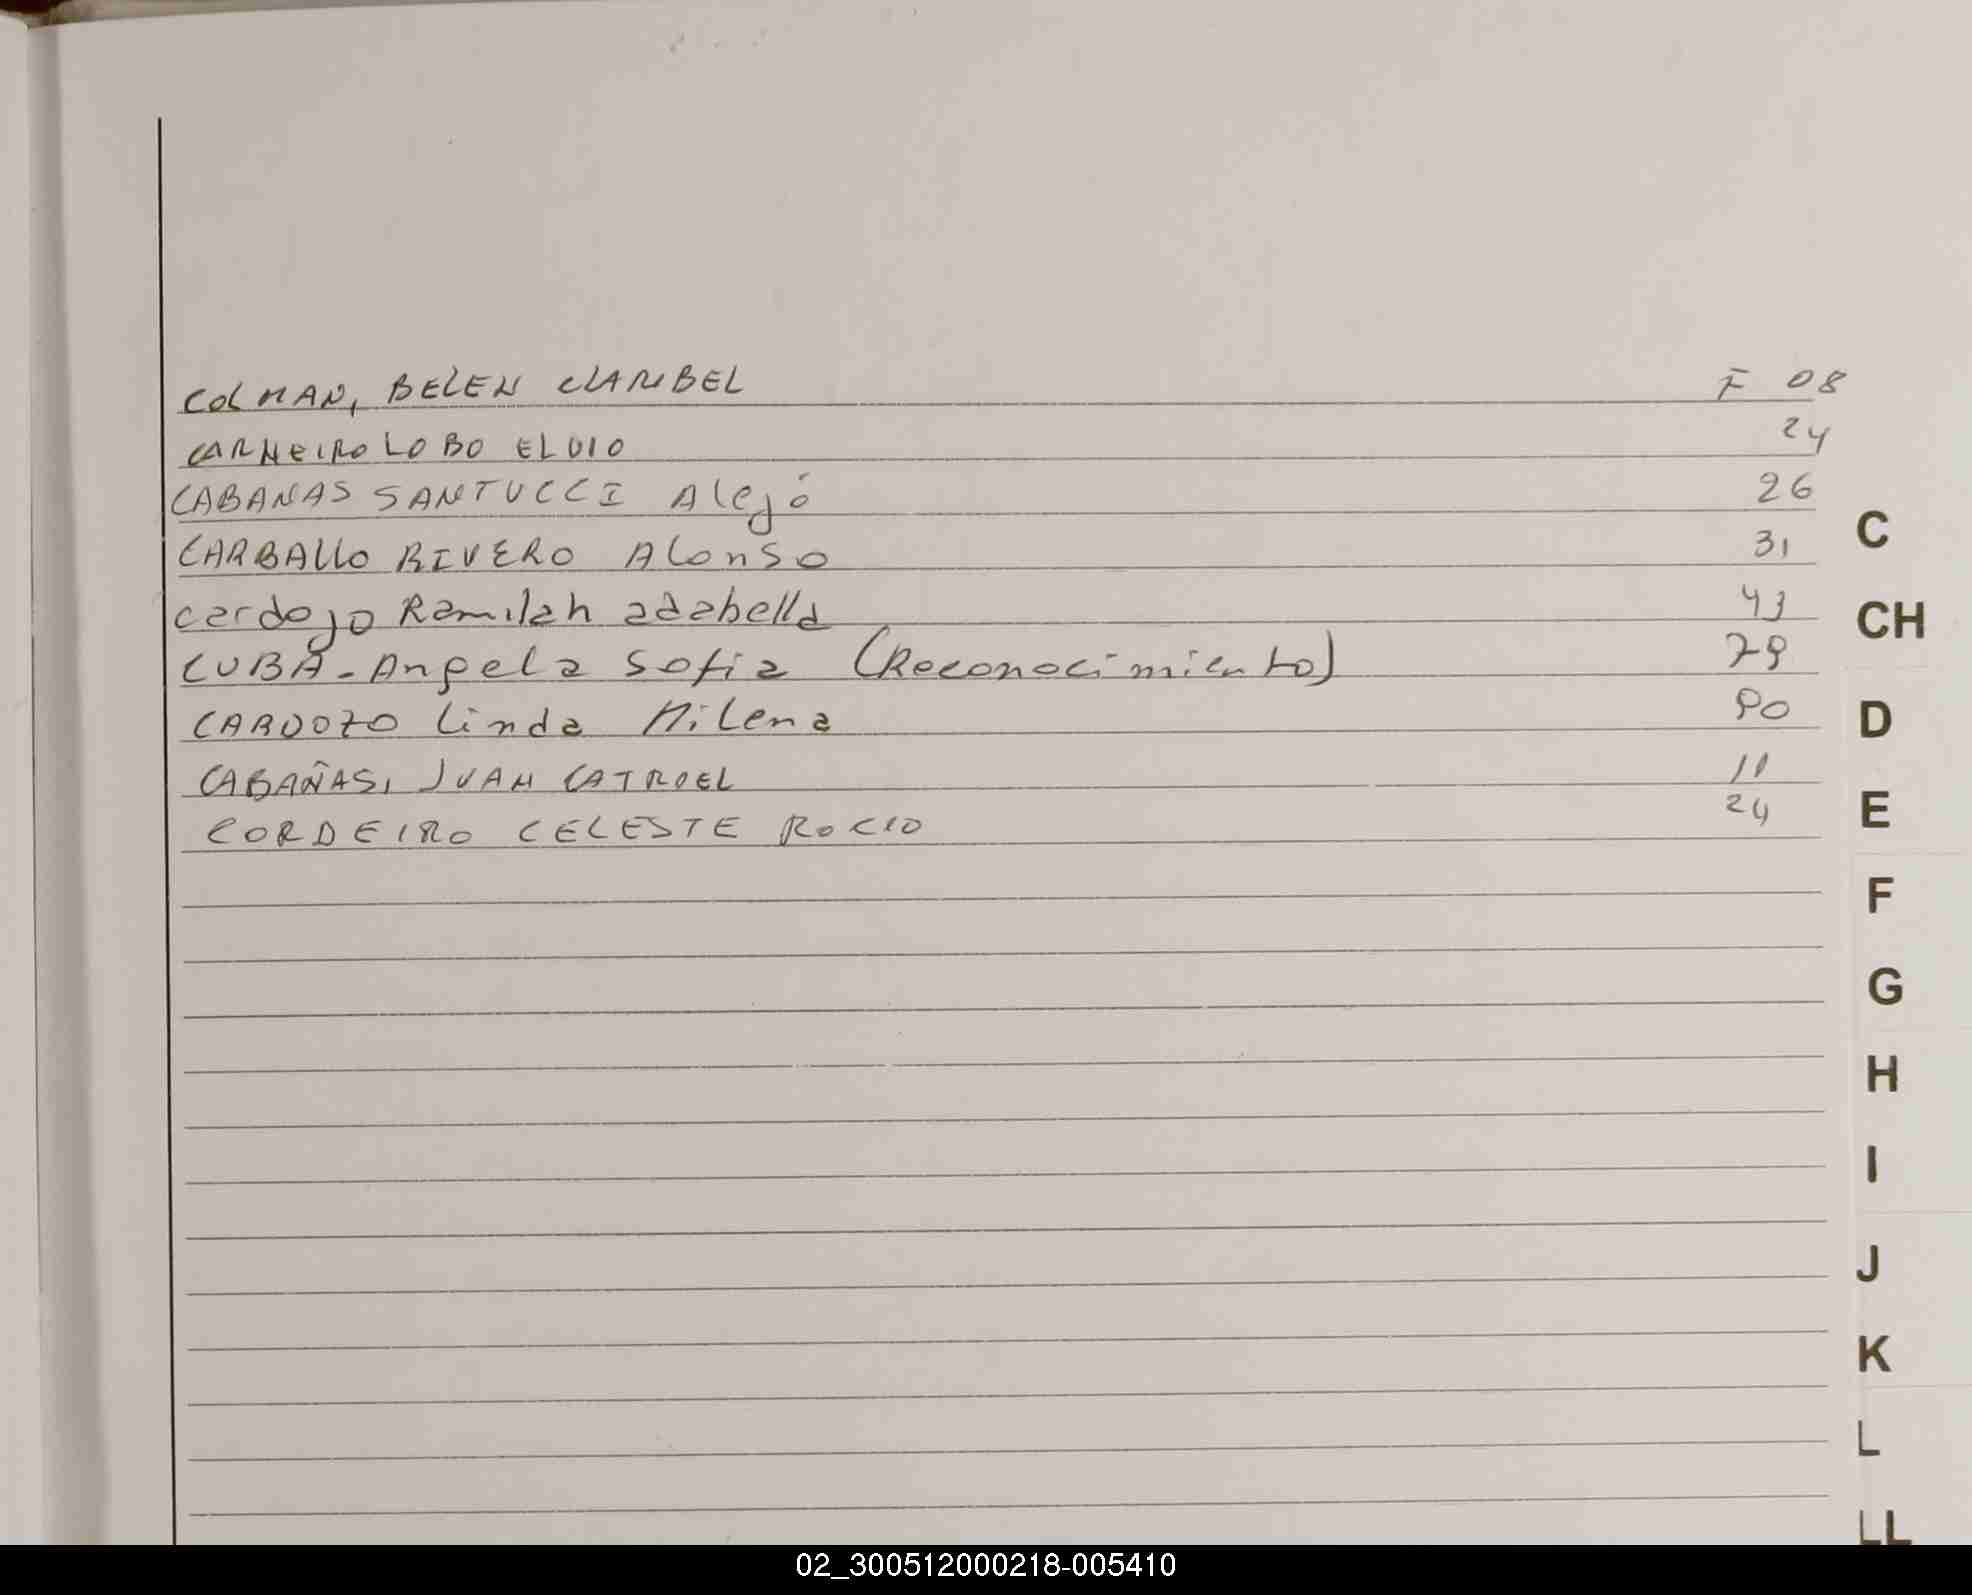 COLMAN, BELEN CLARIBEL F 08
CARNEIRO LOBO ELVIO 24
CABANAS SANTUCCI Alejó 26
CARBALLO RIVERO Alonso 31
C
cardozo Ramilah adabella 43
CH
CUBA - Angela Sofia (Reconocimiento) 79
CARDOZO Linda Milena 90
D
CABAÑAS, JUAN 11
E
CORDEIRO CELESTE ROCIO 24
F
G
H
I
J
K
L
LL
02_300512000218-005410